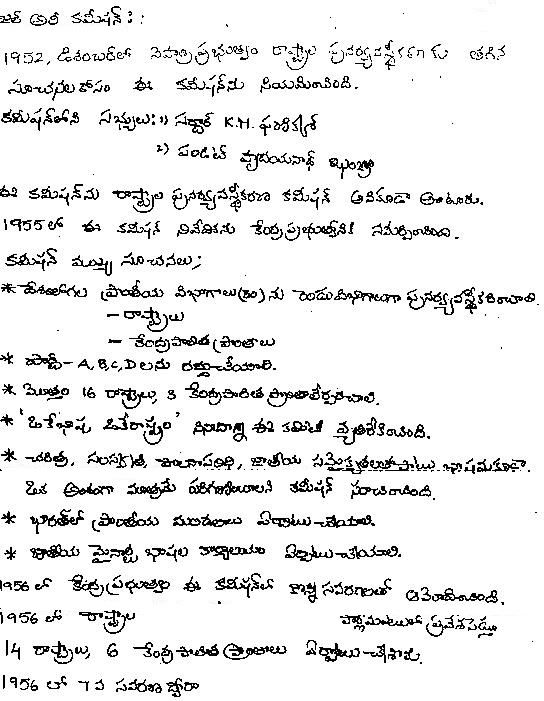 ఫజల్ అలీ కమీషన్ :
1952, డిశంబర్‌లో నెహ్రూ ప్రభుత్వం రాష్ట్రాల పునర్వ్యవస్థీకరణకు తగిన
సూచనల కోసం ఈ కమీషన్‌ను నియమించింది.
కమీషన్‌లోని సభ్యులు: 1) సర్దార్ K.M. ఫణిక్కర్
2) పండిట్ హృదయనాథ్ కుంజ్రూ
ఈ కమీషన్‌ను రాష్ట్రాల పునర్వ్యవస్థీకరణ కమీషన్ అనికూడా అంటారు.
1955 లో ఈ కమీషన్ నివేదికను కేంద్ర ప్రభుత్వానికి సమర్పించింది.
కమీషన్ ముఖ్య సూచనలు;
* దేశంలోగల ప్రాంతీయ విభాగాలు(కం)ను రెండువిభాగాలుగా పునర్వ్యవస్థీకరించాలి
- రాష్ట్రాలు
- కేంద్రపాలిత ప్రాంతాలు
* పార్ట్ - A, B, C, D లను రద్దు చేయాలి.
* మొత్తం 16 రాష్ట్రాలు, 3 కేంద్రపాలిత ప్రాంతాలేర్పరచాలి.
* 'ఒకే భాష ఒకేరాష్ట్రం' నినాదాన్ని ఈ కమిటీ వ్యతిరేకించింది.
* చరిత్ర, సంస్కృతి, జాతీయ సమైక్యతలతోపాటు భాషనుకూడా
ఒక అంశంగా మాత్రమే పరిగణించాలని కమీషన్ సూచించింది.
* భారత్‌లో ప్రాంతీయ మండలాలు ఏర్పాటు చేయాలి.
* జాతీయ మైనార్టీ భాషల కార్యాలయం ఏర్పాటు చేయాలి.
1956 లో కేంద్ర ప్రభుత్వం ఈ కమీషన్‌లో కొన్ని సవరణలతో ఆమోదించింది.
1956 లో రాష్ట్రాల పార్లమెంటులో ప్రవేశపెడ్తూ
14 రాష్ట్రాలు, 6 కేంద్రపాలిత ప్రాంతాలు ఏర్పాటు చేశారు.
1956 లో 7వ సవరణ ద్వారా